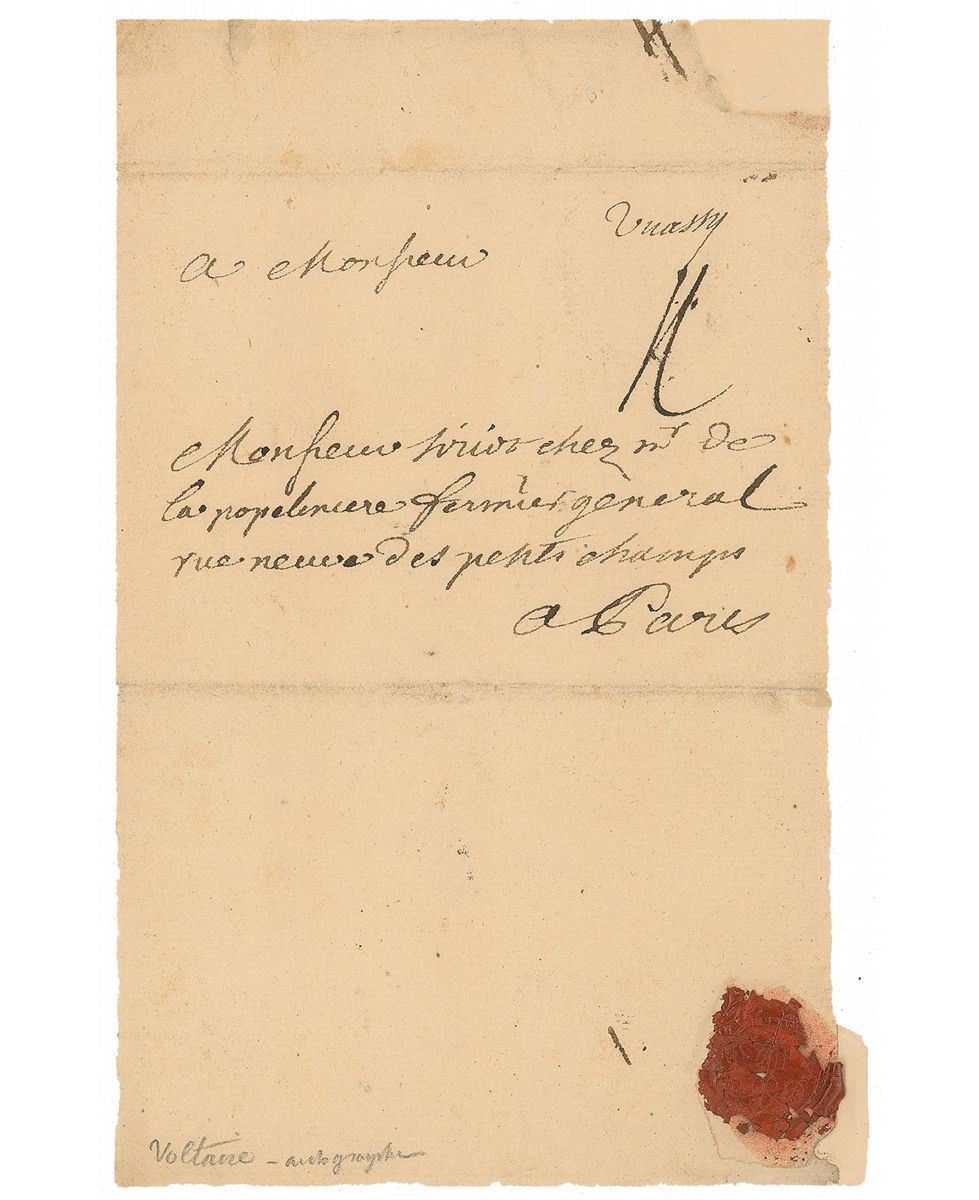 Vuassy
a Monsieur
Monsieur tiriot chez mr de
la popeliniere fermier general
rue neuve des petits champs
a Paris
Voltaire – autographe